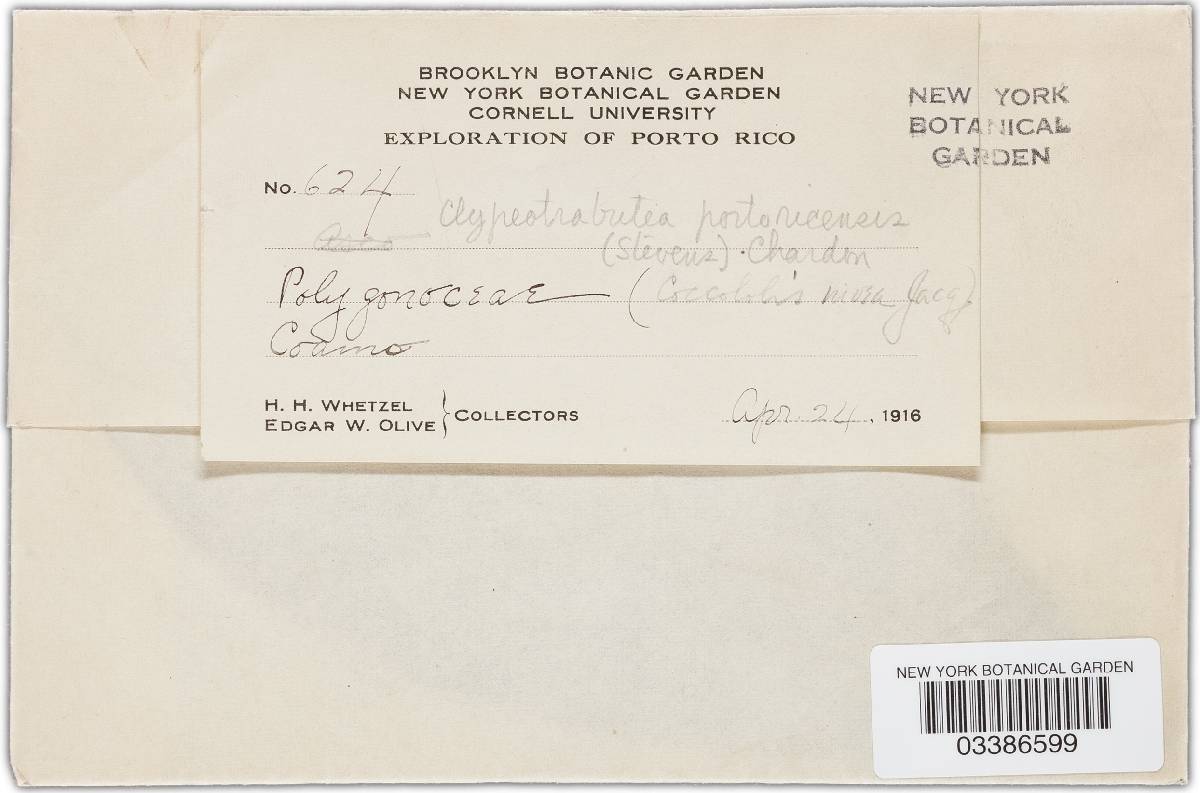 BROOKLYN BOTANIC GARDEN
NEW YORK BOTANICAL GARDEN
CORNELL UNIVERSITY
EXPLORATION OF PORTO RICO
NEW YORK
BOTANICAL
GARDEN
No. 624
Clypeotrabutea portoricensis
(Stevens) · Chardon
Polygonoceae (Coccolobis nivea Jacq)
Coamo
H. H. WHETZEL
EDGAR W. OLIVE } COLLECTORS
Apr. 24, 1916
NEW YORK BOTANICAL GARDEN
03386599